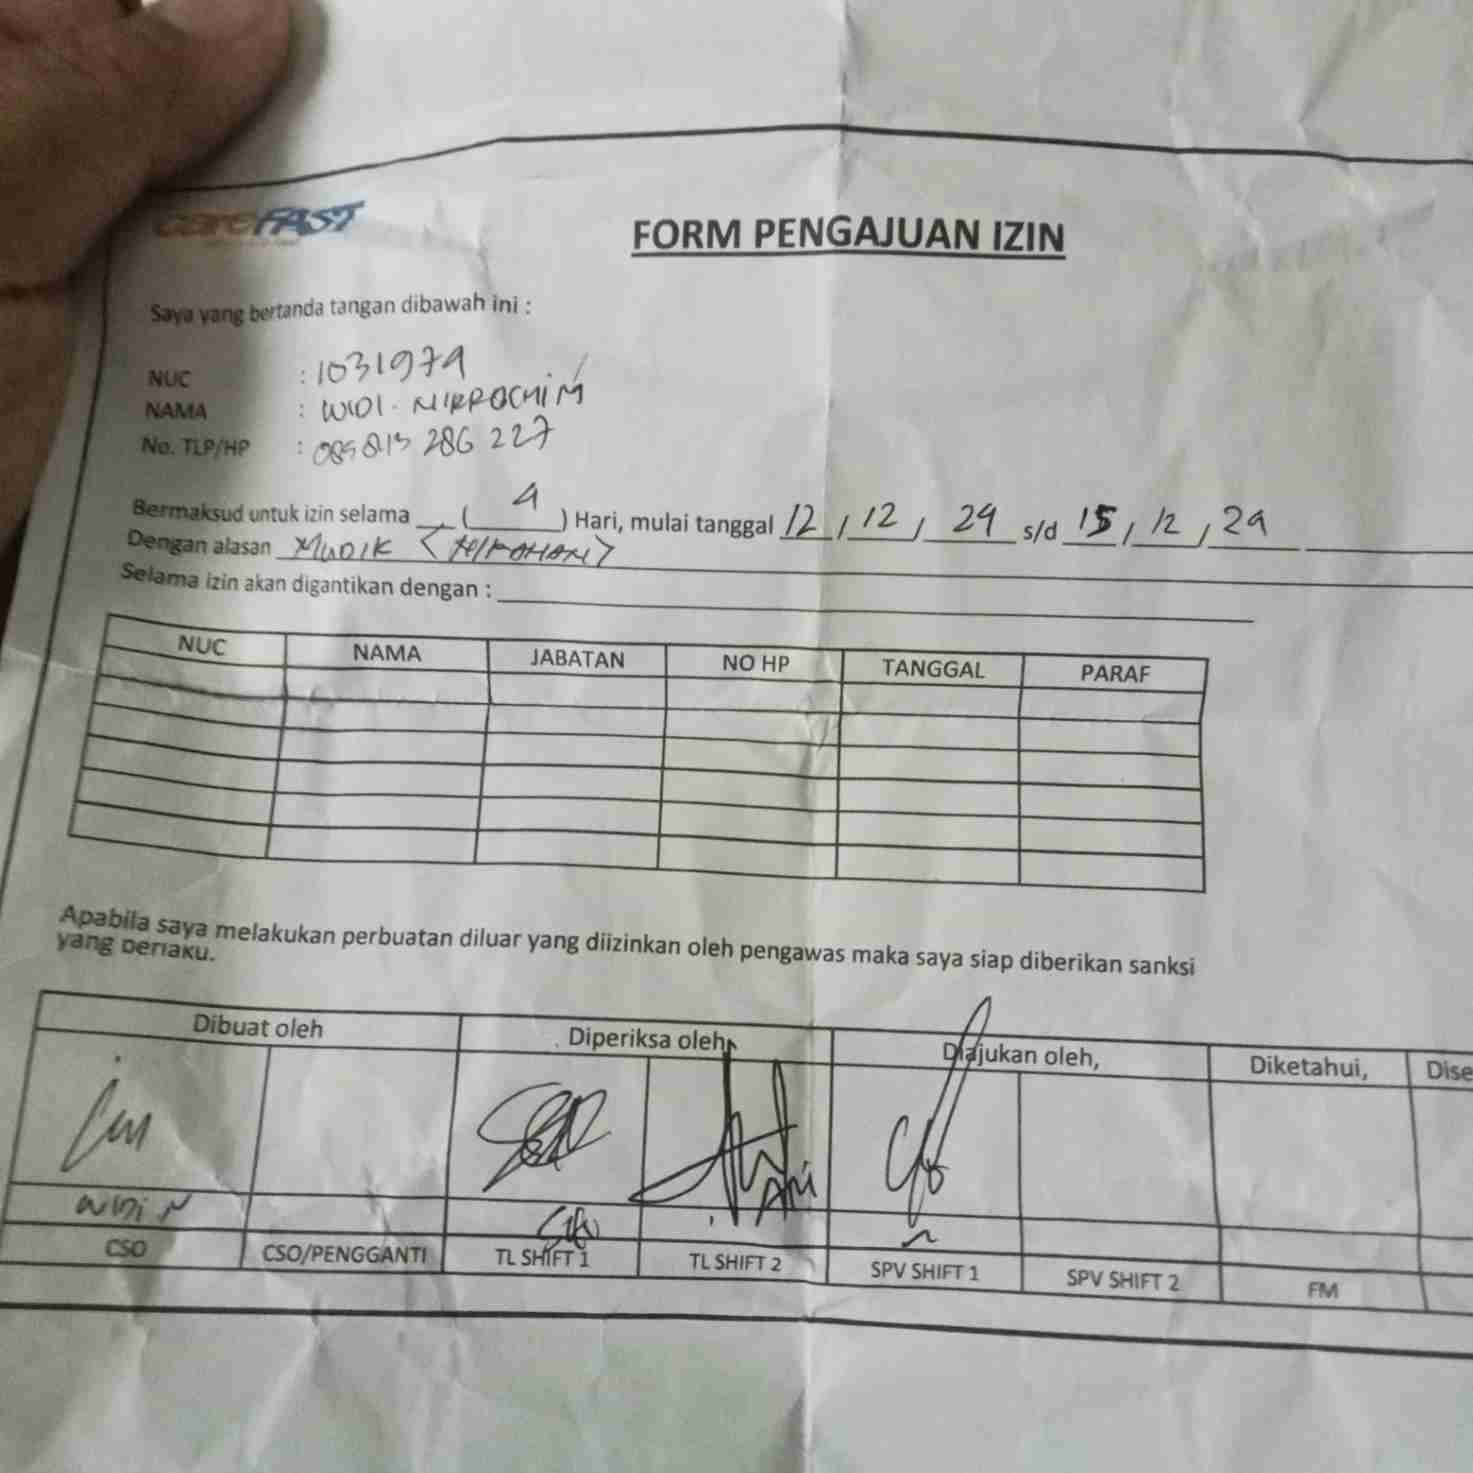 careFAST
FORM PENGAJUAN IZIN
Saya yang bertanda tangan dibawah ini :
NUC : 1031979
NAMA : WIDI. NIRROCHIM
No. TLP/HP : 085813 286 227
Bermaksud untuk izin selama ___ ( 4 ) Hari, mulai tanggal 12 , 12 , 24 s/d 15 , 12 , 24
Dengan alasan MUDIK
Selama izin akan digantikan dengan :
NUC NAMA JABATAN NO HP TANGGAL PARAF
Apabila saya melakukan perbuatan diluar yang diizinkan oleh pengawas maka saya siap diberikan sanksi
yang berlaku.
Dibuat oleh Diperiksa oleh, Diajukan oleh, Diketahui, Dise
Ani
WIDI N
CSO CSO/PENGGANTI TL SHIFT 1 TL SHIFT 2 SPV SHIFT 1 SPV SHIFT 2 FM